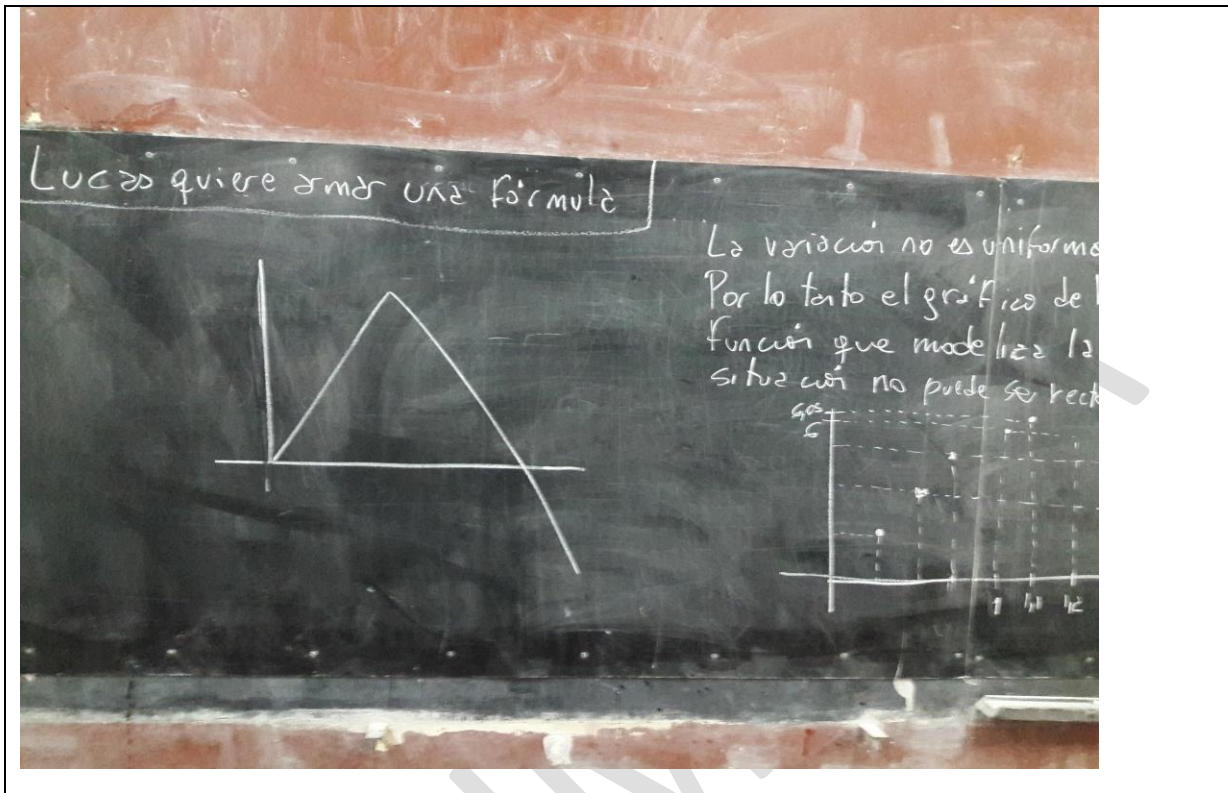 Lucas quiere armar una fórmula
La variación no es uniforme
Por lo tanto el gráfico de
función que modeliza la
situación no puede ser
6,05
6
1 1,1 1,2